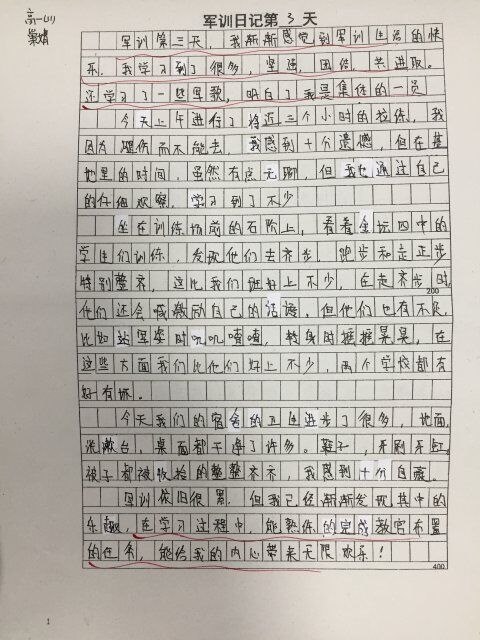 军训日记第3天
高一(4)
军训第三天，我渐渐感觉到军训生活的快
乐，我学习到了很多，坚强，团结，共进取。
还学习了一些军歌，明白了我是集体的一员
今天上午进行了将近三个小时的拉练，我
因为腿伤而不能去，我感到十分遗憾，但在基
地里的时间，虽然有点无聊，但我也通过自己
的仔细观察，学习到了不少
坐在训练场前的石阶上，看着金坛四中的
学生们训练，发现他们去齐步，跑步和走正步
特别整齐，这比我们班好上不少，在走齐步时，
他们还会喊激励自己的话语，但他们也有不足，
比如站军姿时叽叽喳喳，转身时摇摇晃晃，在
这些方面我们比他们好上不少，两个学校都有
好有坏。
今天我们的宿舍的卫生进步了很多，地面，
洗漱台，桌面都干净了许多。鞋子，牙刷牙缸，
被子都被收拾的整整齐齐，我感到十分自豪。
军训依旧很累，但我已经渐渐发现其中的
乐趣，在学习过程中，能熟练的完成教官布置
的任务，能给我的内心带来无限欢乐！
200
400
1